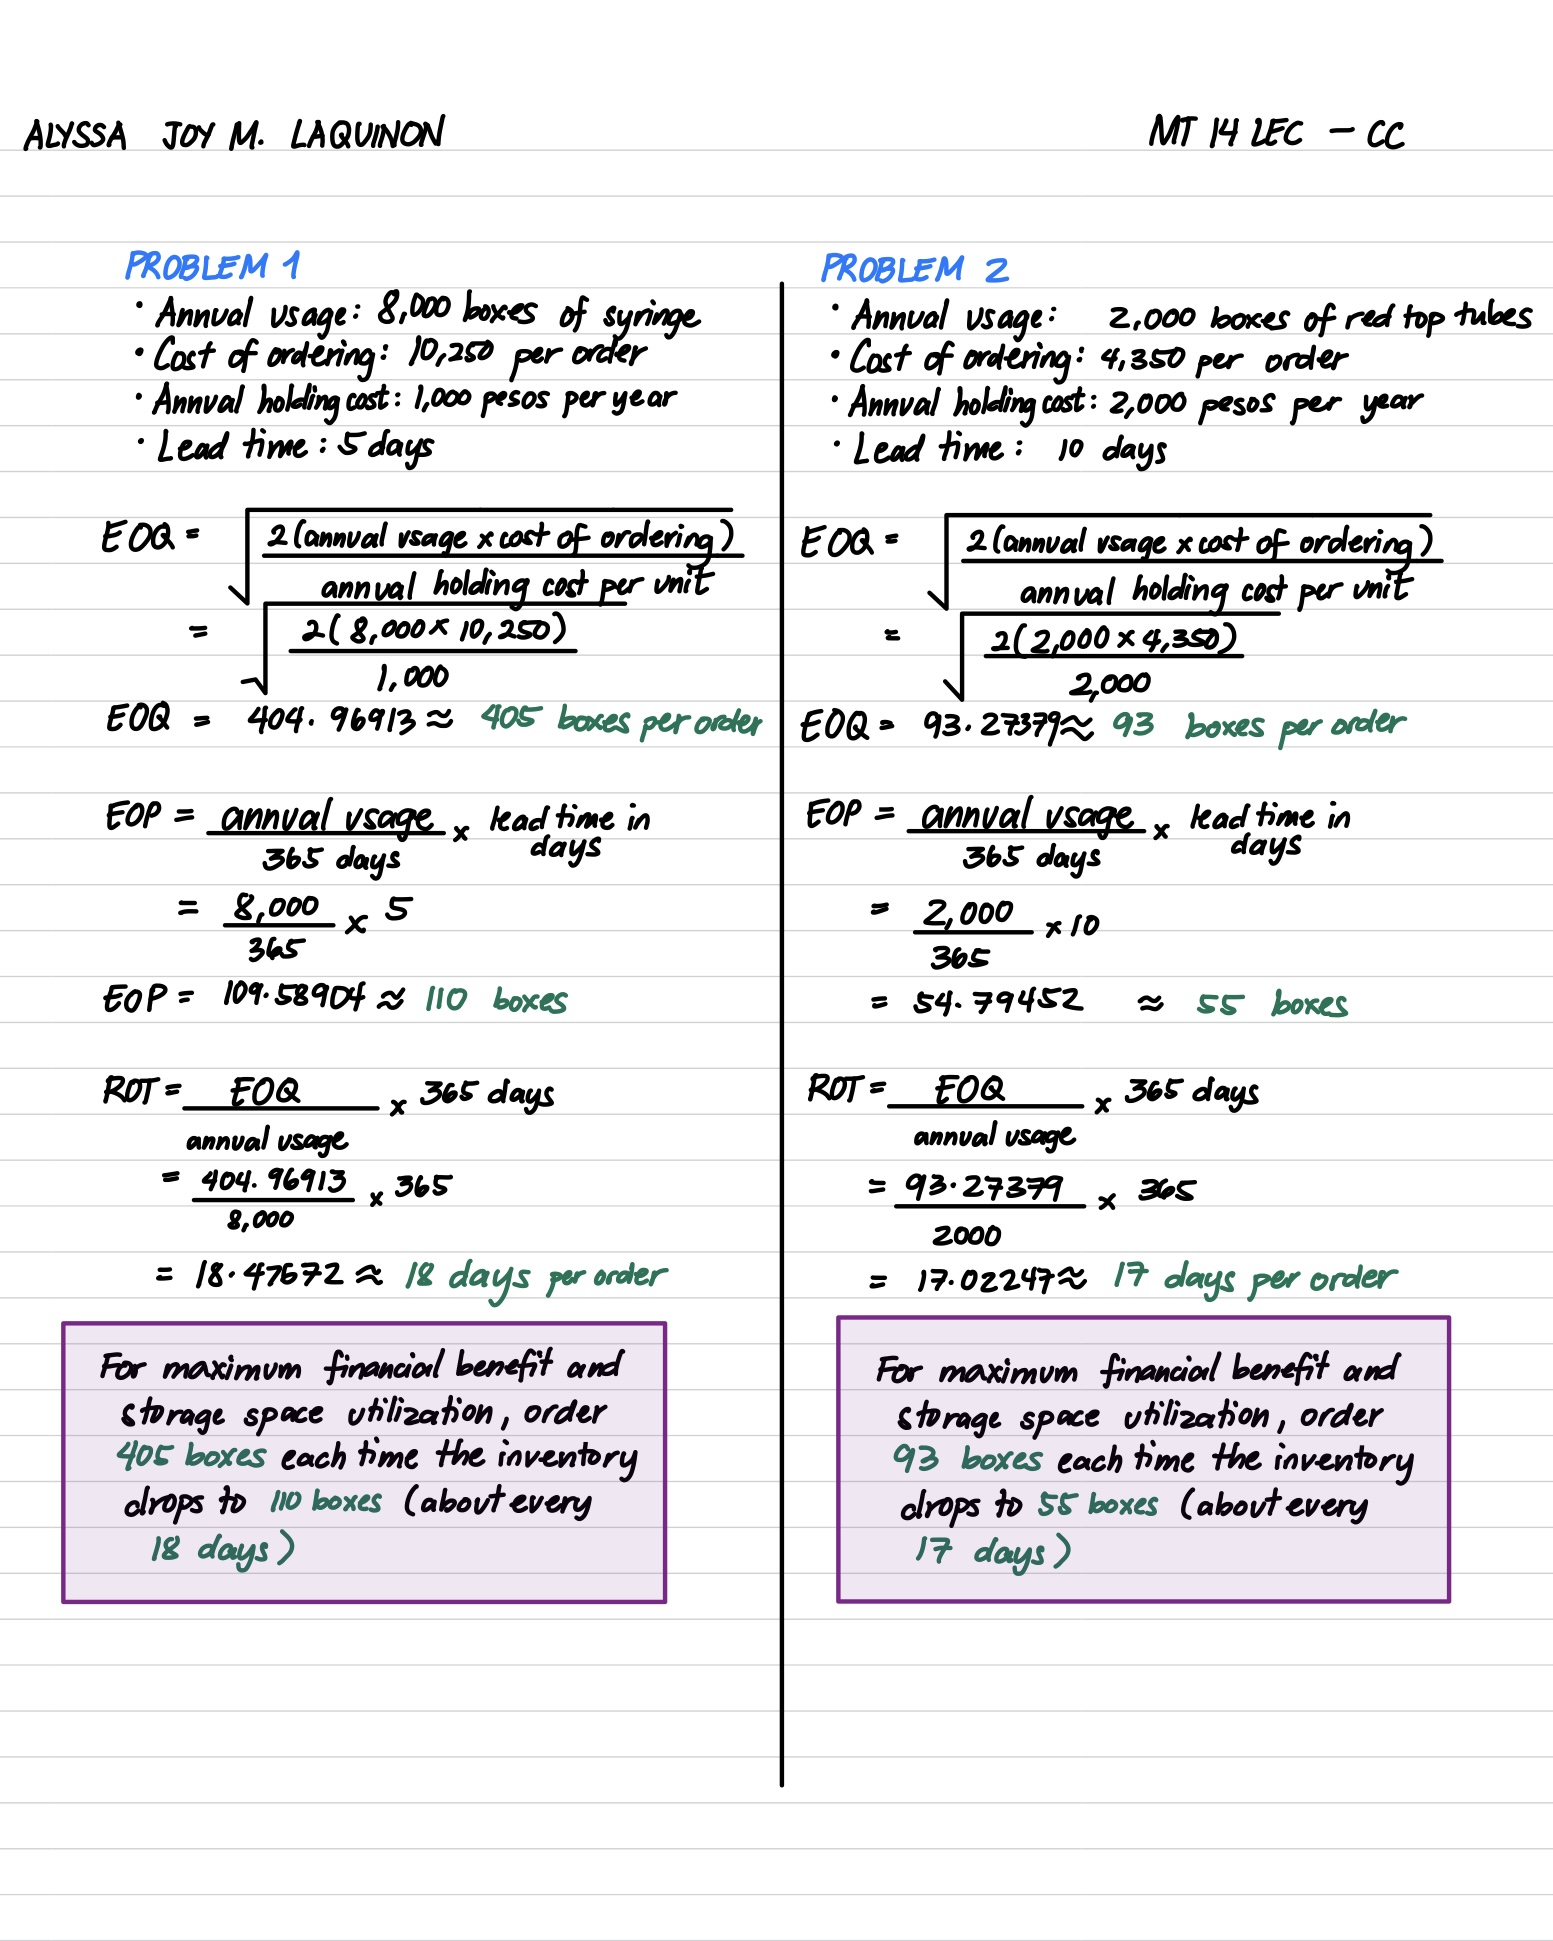 ALYSSA JOY M. LAQUINON
MT 14 LEC - CC
PROBLEM 1
• Annual usage: 8,000 boxes of syringe
• Cost of ordering: 10,250 per order
• Annual holding cost: 1,000 pesos per year
• Lead time: 5 days
EOQ = √ 2(annual usage x cost of ordering)
annual holding cost per unit
= √ 2(8,000 x 10,250)
1,000
EOQ = 404.96913 ≈ 405 boxes per order
EOP = annual usage x lead time in
365 days days
= 8,000 x 5
365
EOP = 109.58904 ≈ 110 boxes
ROT = EOQ x 365 days
annual usage
= 404.96913 x 365
8,000
= 18.47672 ≈ 18 days per order
For maximum financial benefit and
storage space utilization, order
405 boxes each time the inventory
drops to 110 boxes (about every
18 days)
PROBLEM 2
• Annual usage: 2,000 boxes of red top tubes
• Cost of ordering: 4,350 per order
• Annual holding cost: 2,000 pesos per year
• Lead time: 10 days
EOQ = √ 2(annual usage x cost of ordering)
annual holding cost per unit
= √ 2(2,000 x 4,350)
2,000
EOQ = 93.27379 ≈ 93 boxes per order
EOP = annual usage x lead time in
365 days days
= 2,000 x 10
365
= 54.79452 ≈ 55 boxes
ROT = EOQ x 365 days
annual usage
= 93.27379 x 365
2000
= 17.02247 ≈ 17 days per order
For maximum financial benefit and
storage space utilization, order
93 boxes each time the inventory
drops to 55 boxes (about every
17 days)